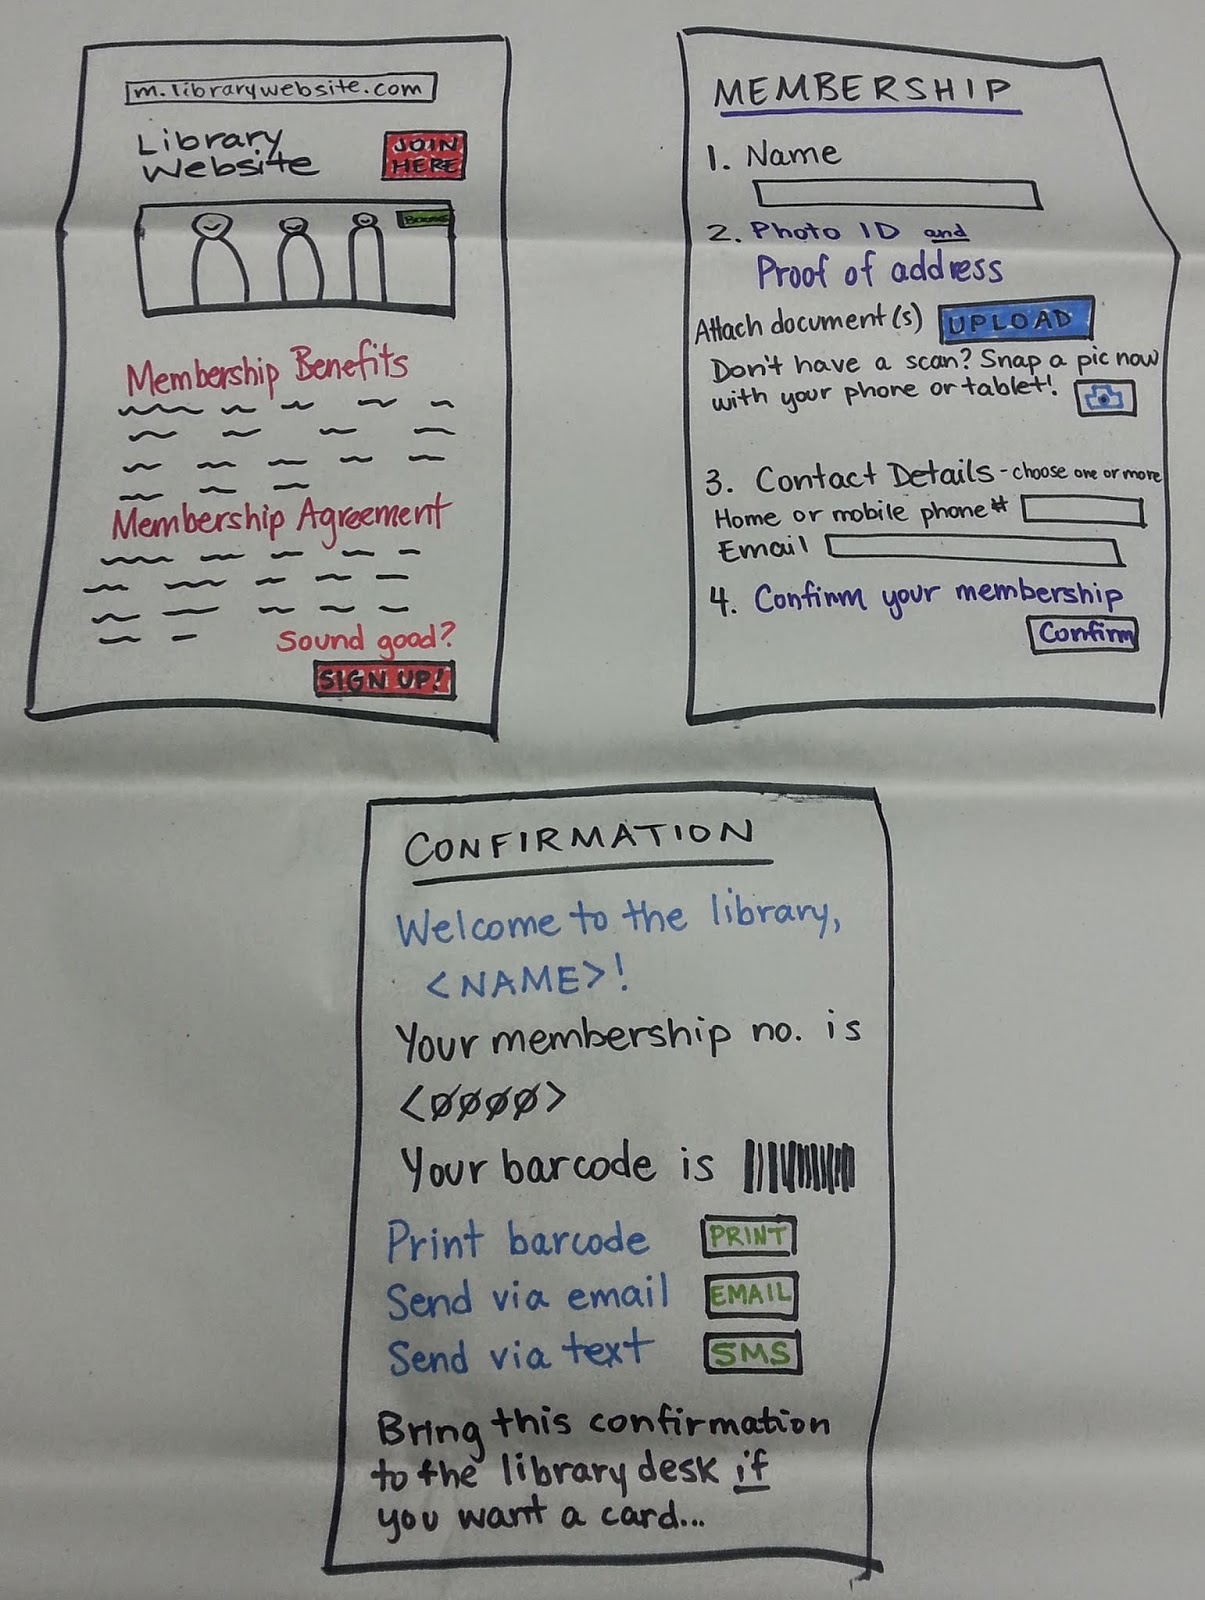 m.librarywebsite.com
Library
Website
JOIN
HERE
Books
Membership Benefits
Membership Agreement
Sound good?
SIGN UP!
MEMBERSHIP
1. Name
2. Photo ID and
Proof of address
Attach document(s) UPLOAD
Don't have a scan? Snap a pic now
with your phone or tablet!
3. Contact Details - choose one or more
Home or mobile phone #
Email
4. Confirm your membership
Confirm
CONFIRMATION
Welcome to the library,
<NAME>!
Your membership no. is
<0000>
Your barcode is
Print barcode PRINT
Send via email EMAIL
Send via text SMS
Bring this confirmation
to the library desk if
you want a card...